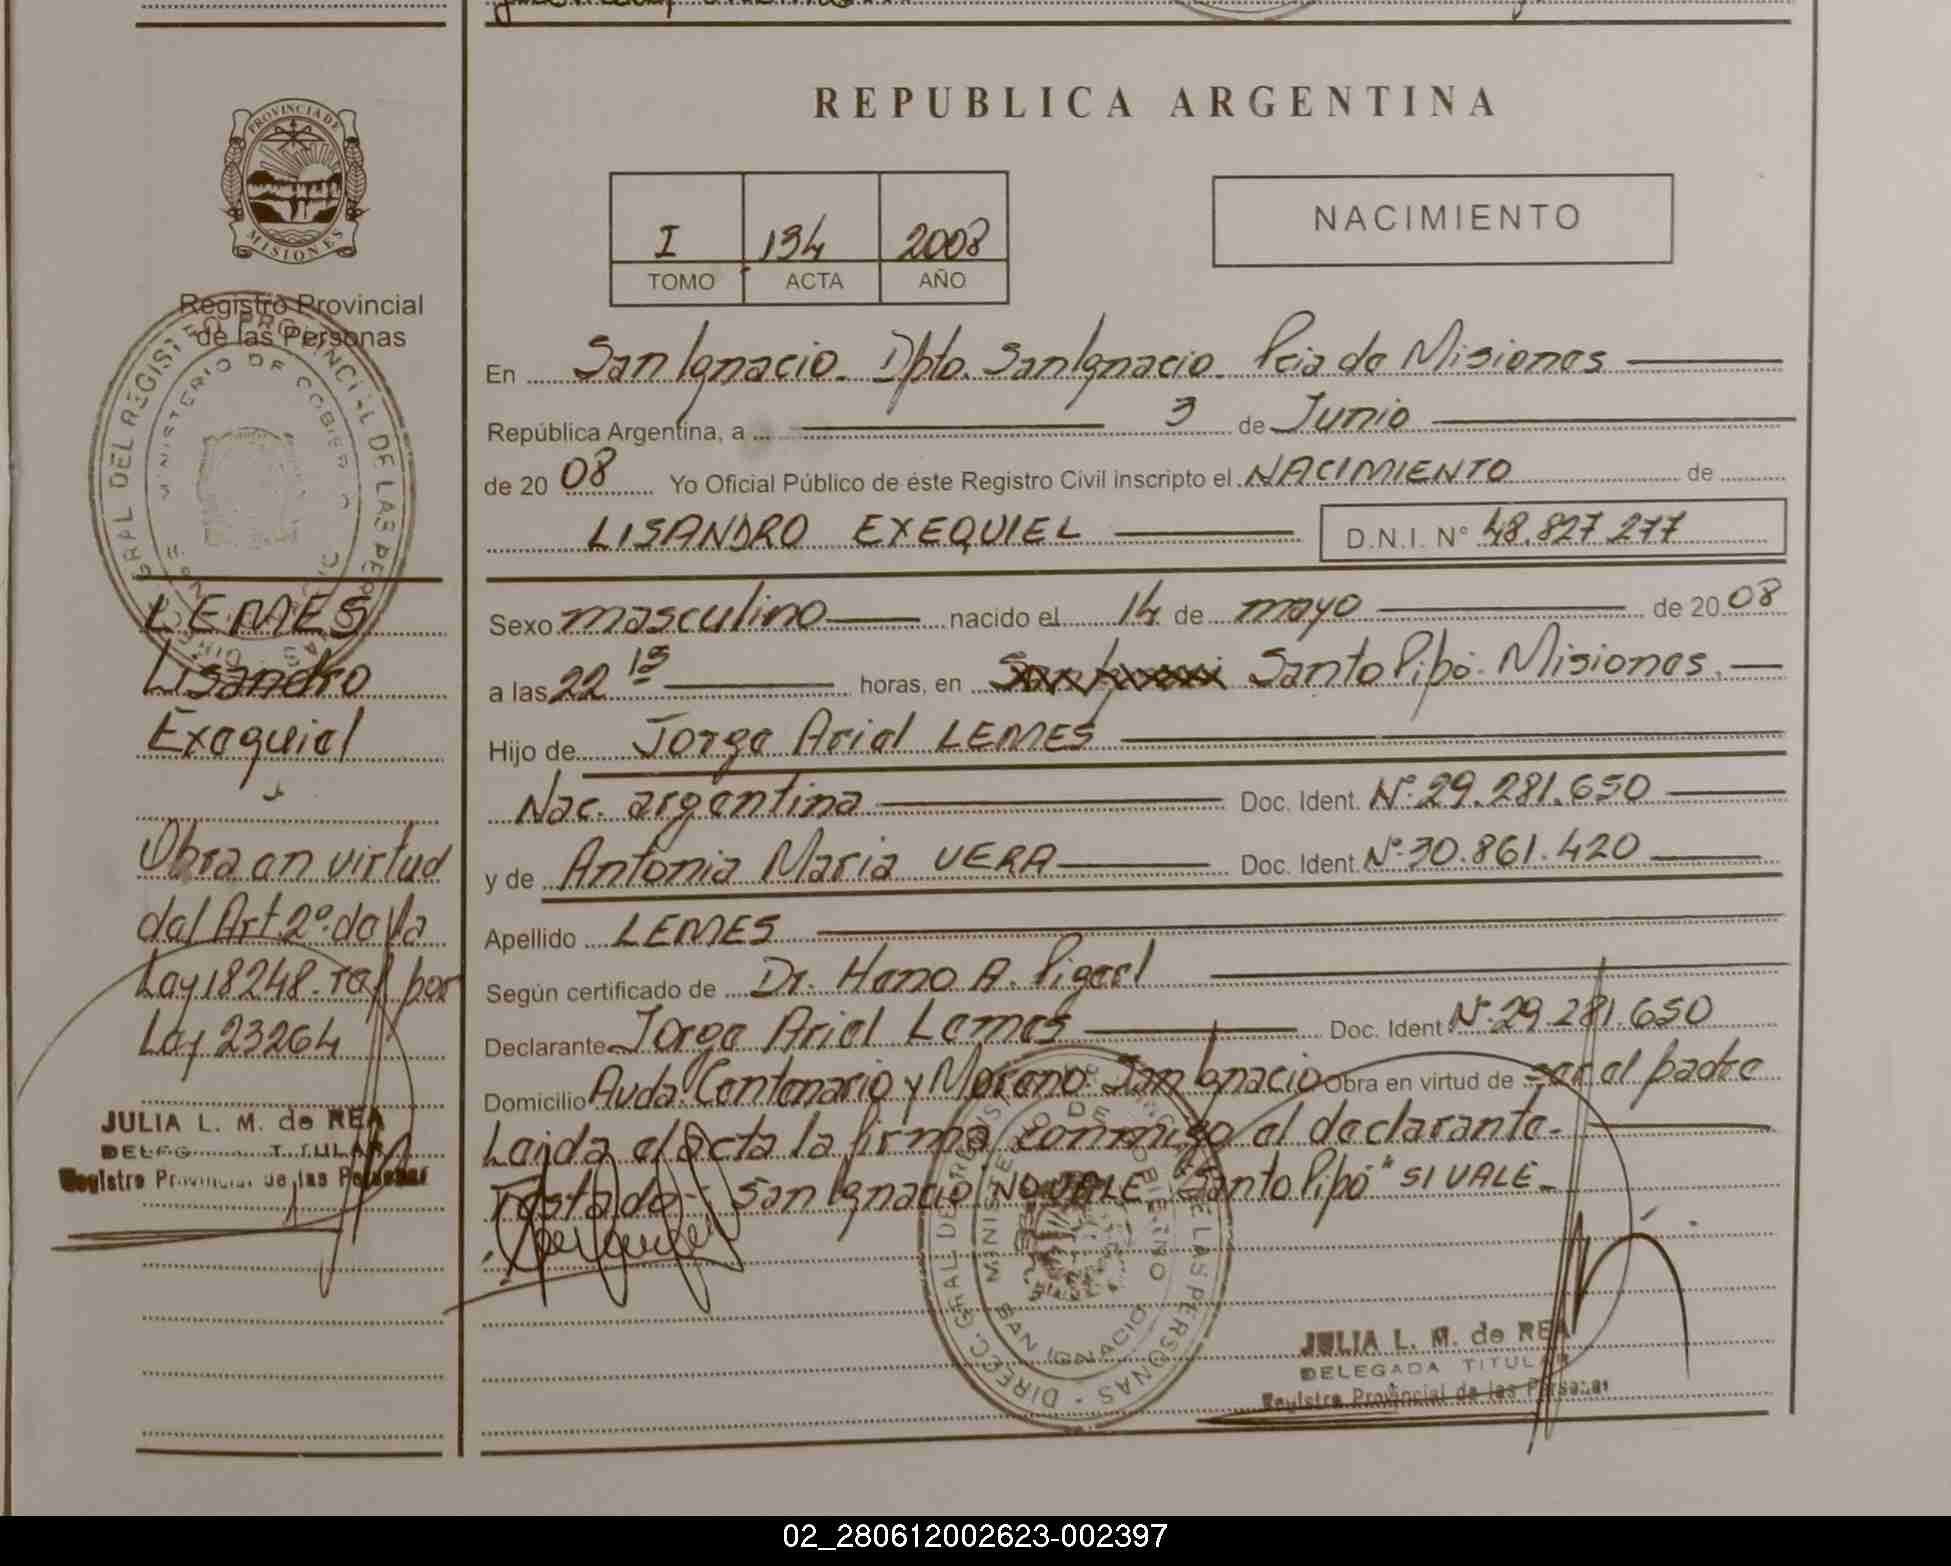 REPUBLICA ARGENTINA
PROVINCIA DE
MISIONES
Registro Provincial
de las Personas
I 134 2008
TOMO ACTA AÑO
NACIMIENTO
En San Ignacio. Dpto. San Ignacio. Pcia de Misiones
República Argentina, a 3 de Junio
de 20 08 Yo Oficial Público de éste Registro Civil inscripto el NACIMIENTO de
LISANDRO EXEQUIEL D.N.I. N° 48.827 277
Sexo masculino nacido el 14 de mayo de 20 08
a las 22 15 horas, en Santo Pipó. Misiones.
Hijo de Jorge Ariel LEMES
Nac. argentina Doc. Ident. N° 29.281.650
y de Antonia Maria VERA Doc. Ident. N° 30.861.420
Apellido LEMES
Según certificado de Dr. Hano A.
Declarante Jorge Ariel Lemes Doc. Ident. N° 29.281.650
Domicilio Avda. Centenario y Moreno. San Ignacio Obra en virtud de ser el padre
Leída el acta la firma conmigo el declarante.
Testado: San Ignacio NO VALE "Santo Pipó" SI VALE.
LEMES
Lisandro
Exequiel
Obra en virtud
del Art. 2° de la
Ley 18248. ref por
Ley 23264
JULIA L. M. de REA
DELEGADA TITULAR
Registro Provincial de las Personas
DIREC. GRAL DEL REGISTRO PROVINCIAL DE LAS PERSONAS
MINISTERIO DE GOBIERNO
MINISTERIO DE GOBIERNO
SAN IGNACIO
JULIA L. M. de REA
DELEGADA TITULAR
Registro Provincial de las Personas
02_280612002623-002397